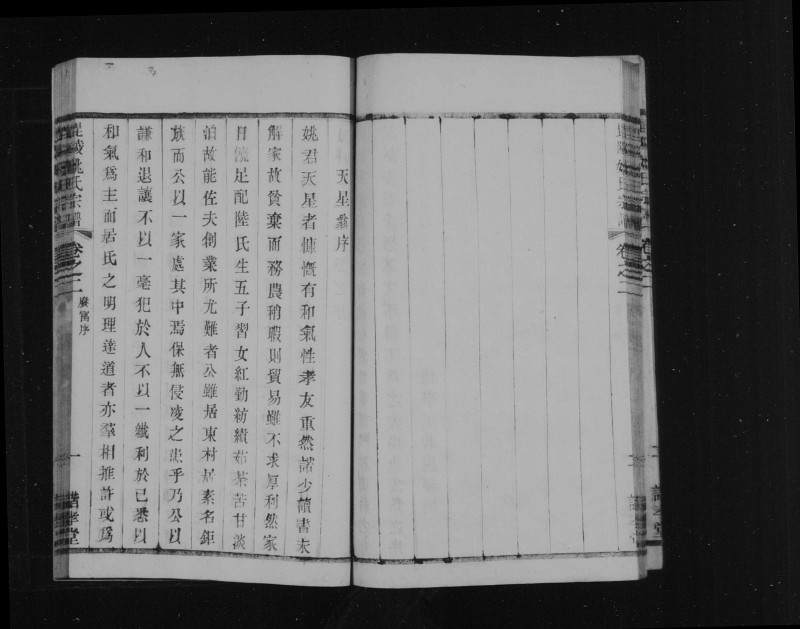 天星翁序
姚君天星者慷慨有和氣性孝友重然諾少讀書未
解家故貧棄而務農稍暇則貿易雖不求厚利然家
日饒足配陸氏生五子習女紅勤紡績茹荼苦甘淡
泊故能佐夫創業所尤難者公雖居東村居素名鉅
族而公以一家處其中焉保無侵凌之患乎乃公以
謙和退讓不以一毫犯於人不以一纖利於己悉以
和氣爲主而居氏之明理達道者亦羣相推許或爲
毘陵姚氏宗譜 卷之二 序 一
毘陵姚氏宗譜 卷之二